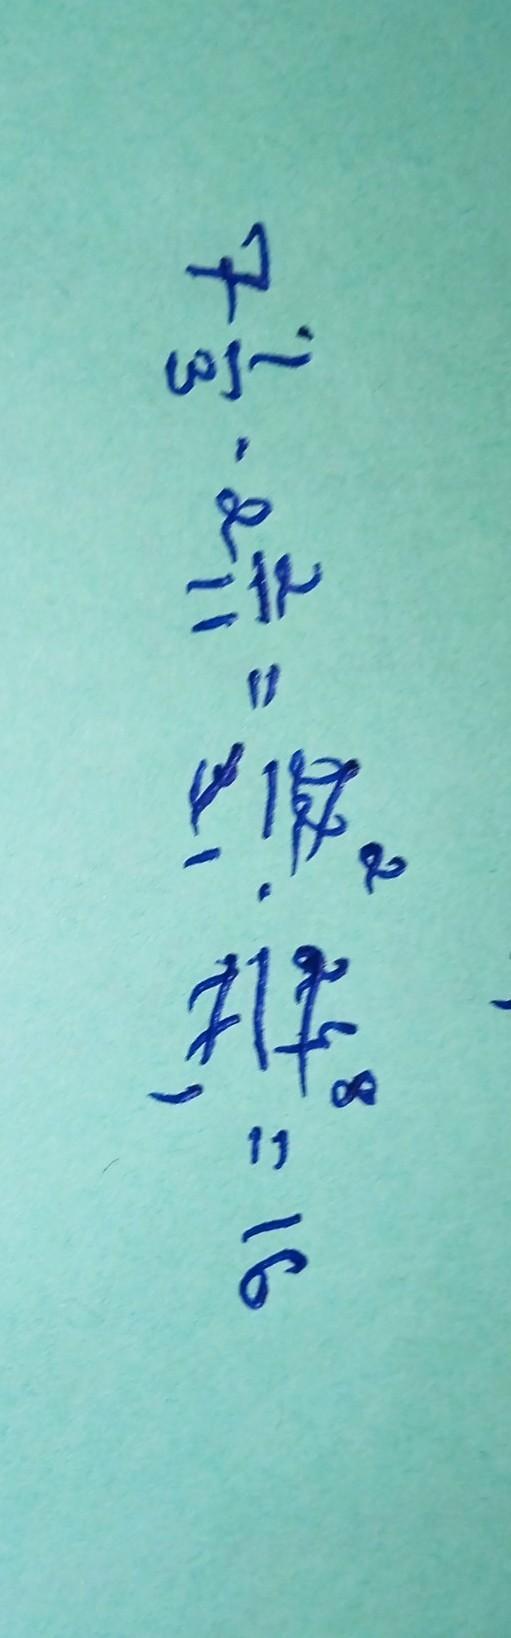 7 1/3 · 2 2/11 = 22/3 · 24/11 = 16